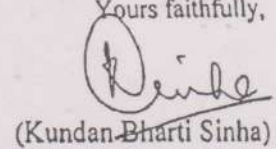 Yours faithfully,
Sinha
(Kundan Bharti Sinha)